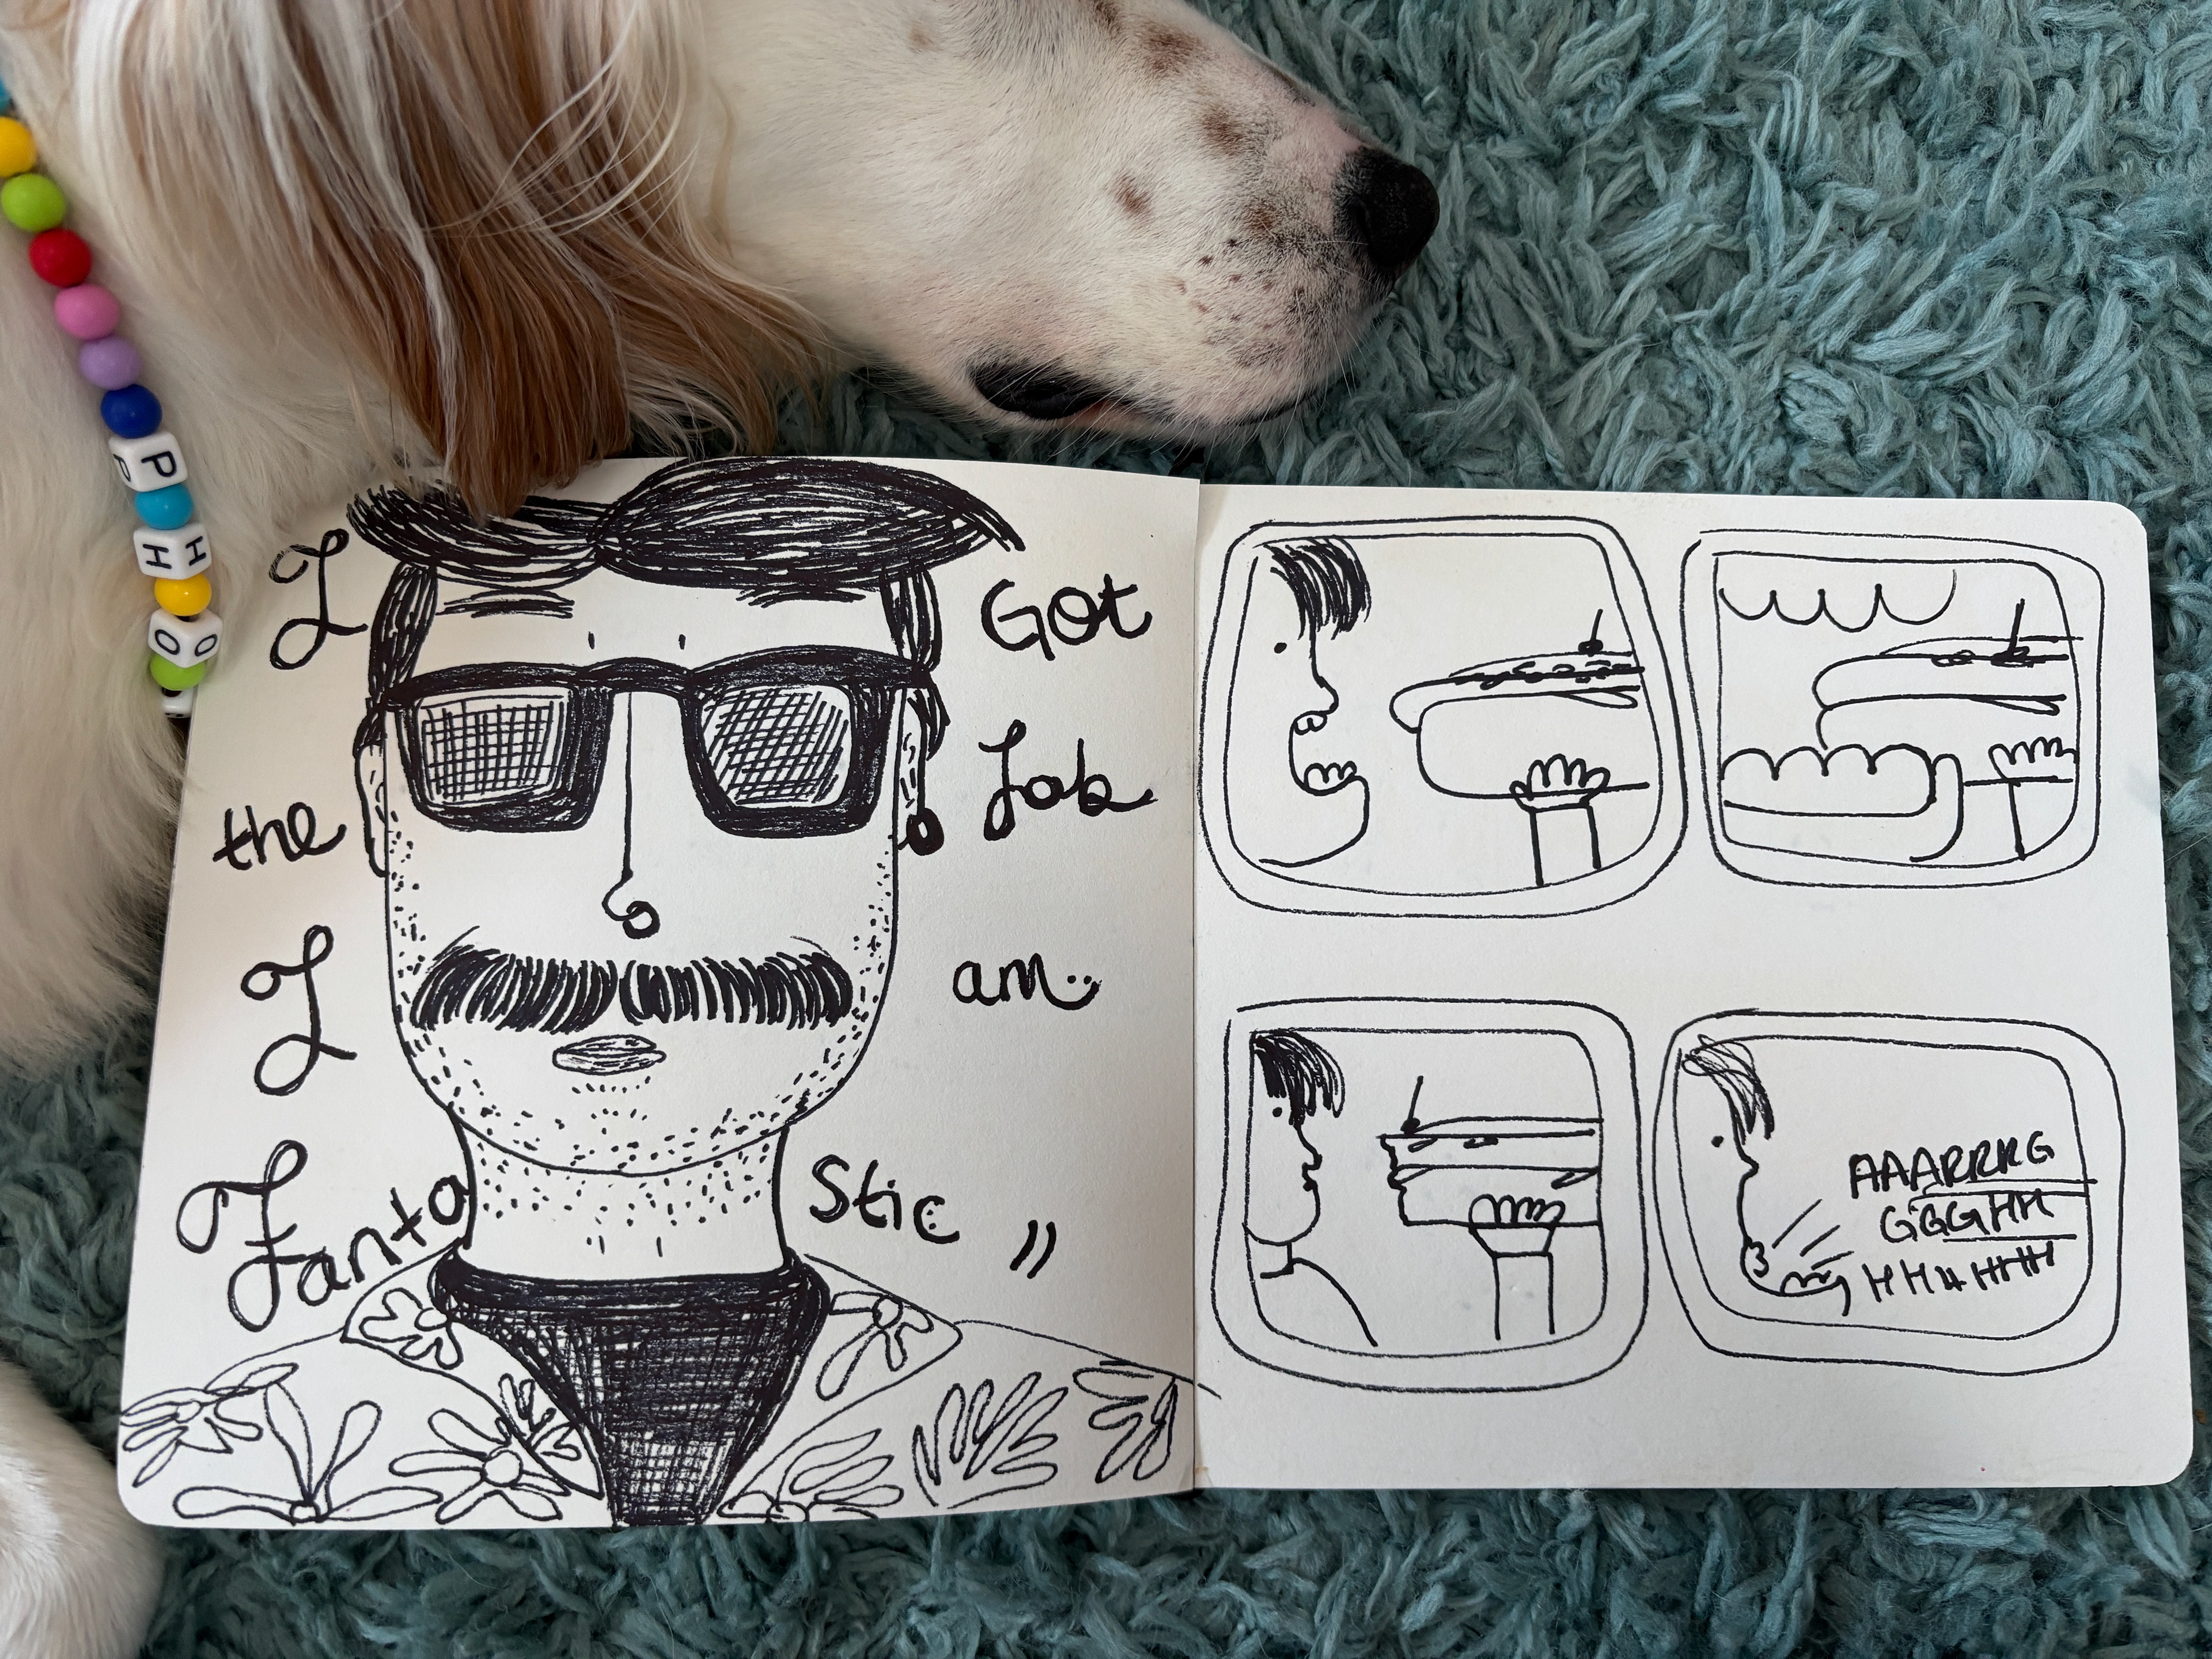 P
H
O
I Got
the Job
I am
Fanta Stic
AAARRRG
GGGHH
HHHHHH